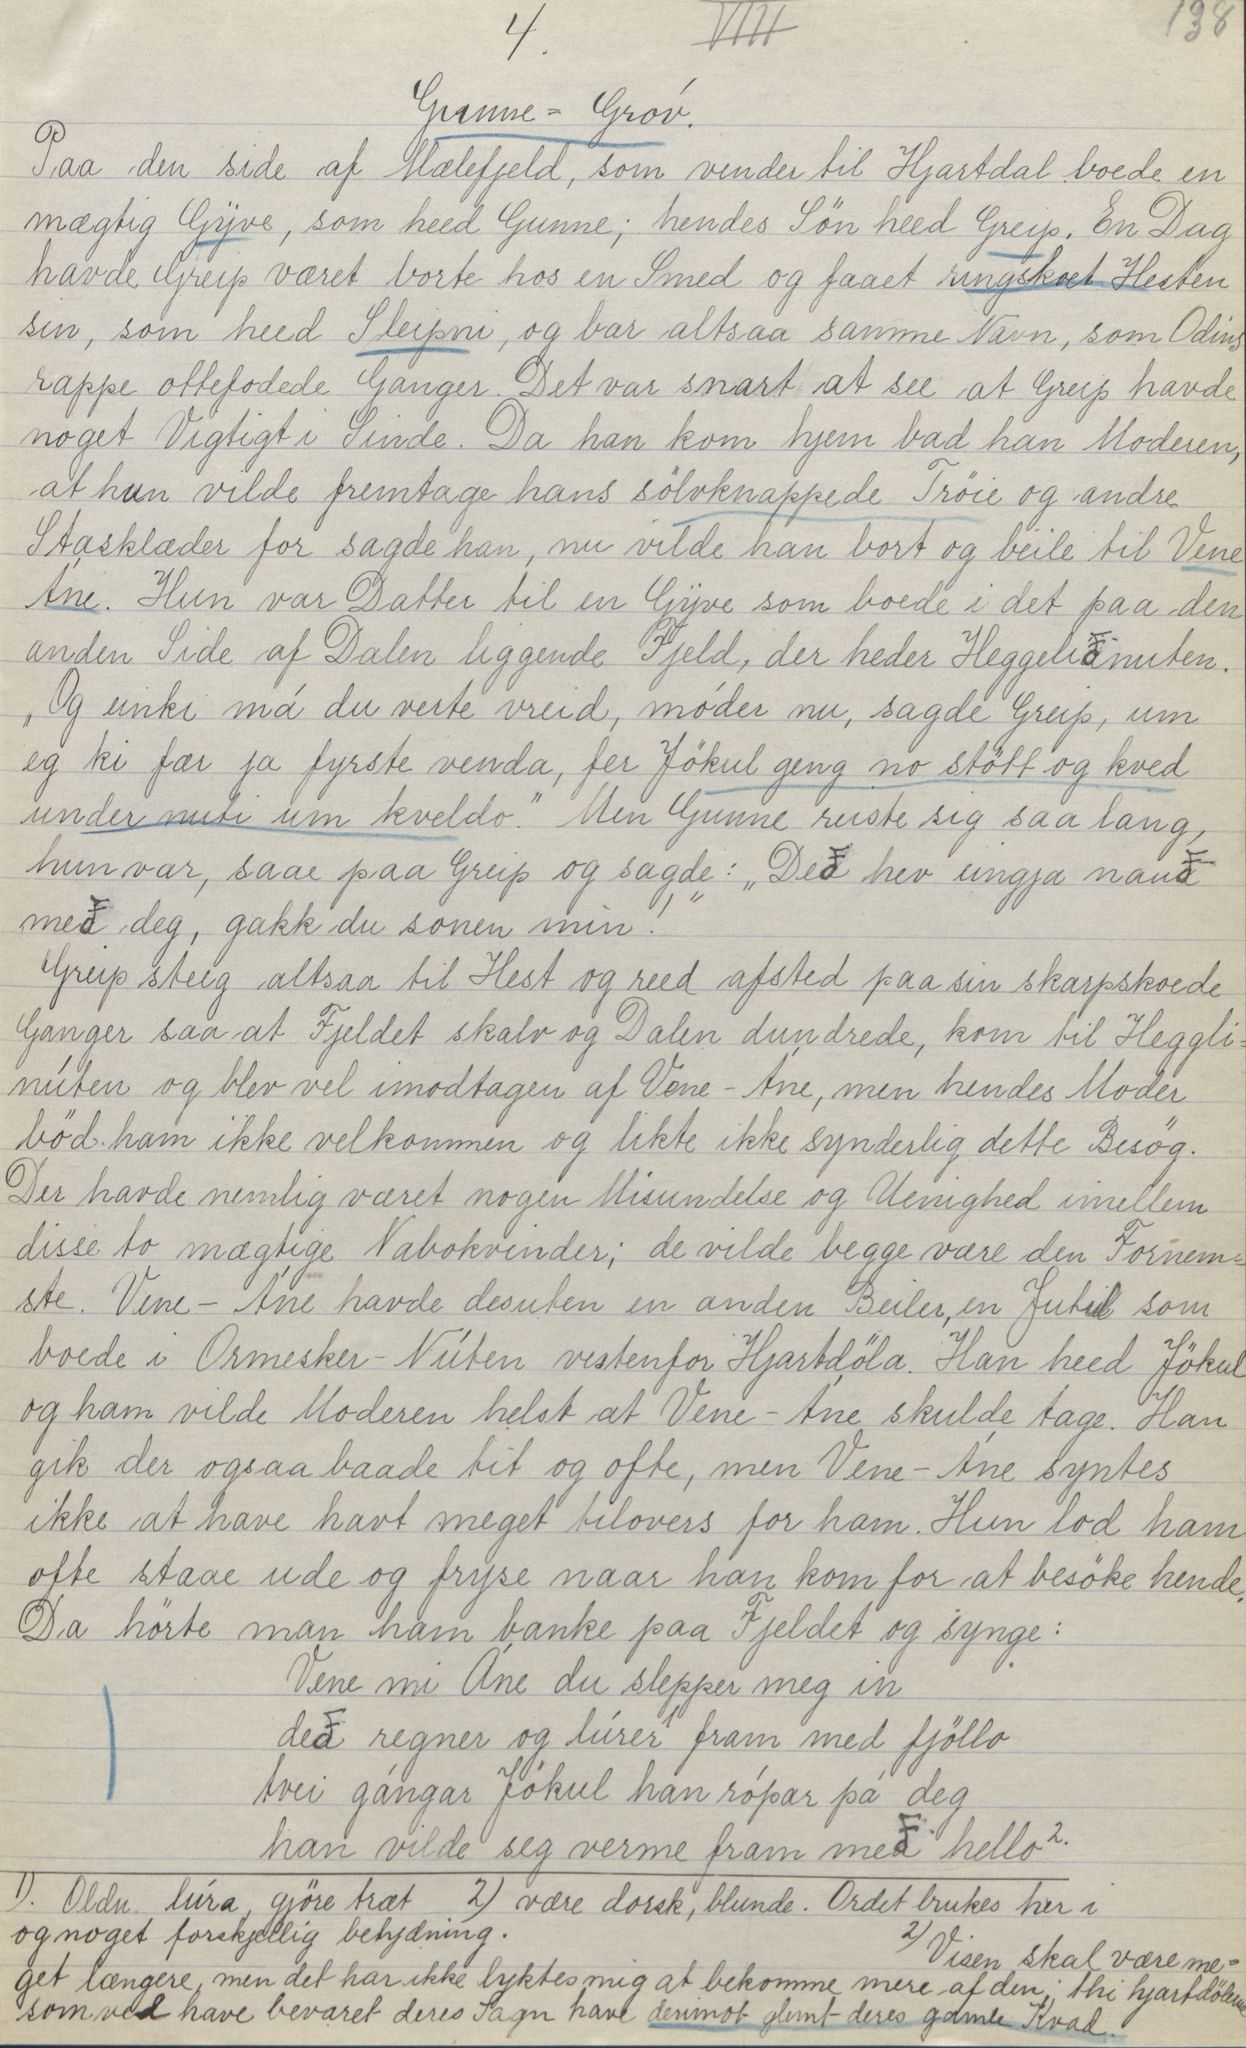 4. VIII 138
Gunne-Gróv.
Paa den side af Mælefjeld, som vender til Hjartdal boede en
mægtig Gyve, som heed Gunne; hendes Sön heed Greip. En Dag
havde Greip været borte hos en Smed og faaet ringskoet Hesten
sin, som heed Sleipni, og bar altsaa samme Navn, som Odins
rappe ottefodede Ganger. Det var snart at see at Greip havde
noget Vigtigt i Sinde. Da han kom hjem bad han Moderen,
at hun vilde fremtage hans sölvknappede Tröie og andre
Stasklæder for sagde han, nu vilde han bort og beile til Vene
Áne. Hun var Datter til en Gyve som boede i det paa den
anden Side af Dalen liggende Fjeld, der heder Heggeliðnuten.
„Og einki má du verte vreid, móder nu, sagde Greip, um
eg ki fær ja fyrste venda, fer Jökul geng no stött og kved
under nuti um kveldo." Men Gunne reiste sig saa lang,
hun var, saae paa Greip og sagde: „Deð hev eingja nauð
með deg, gakk du sonen min!"
Greip steig altsaa til Hest og reed afsted paa sin skarpskoede
Ganger saa at Fjeldet skalv og Dalen dundrede, kom til Heggli=
núten og blev vel imodtagen af Vene-Áne, men hendes Moder
böd ham ikke velkommen og likte ikke synderlig dette Besög.
Der havde nemlig været nogen Misundelse og Uenighed imellem
disse to mægtige Nabokvinder; de vilde begge være den Fornem=
ste. Vene-Áne havde desuten en anden Beiler, en Jutul som
boede i Ormesker-Núten vestenfor Hjartdöla. Han heed Jökul
og ham vilde Moderen helst at Vene-Áne skulde tage. Han
gik der ogsaa baade tit og ofte, men Vene-Áne syntes
ikke at have havt meget tilovers for ham. Hun lod ham
ofte staae ude og fryse naar han kom for at besöke hende.
Da hörte man ham banke paa Fjeldet og synge:
Vene mi Áne du slepper meg in
deð regner og lúrer¹ fram med fjöllo
tvei gángar Jökul han rópar pá deg
han vilde seg verme fram með hello².
1). Oldn. lúra, gjöre træt 2) være dorsk, blunde. Ordet brukes her i
og noget forskjellig betydning.
2) Visen skal være me=
get længere, men det har ikke lyktes mig at bekomme mere af den; thi hjartdölerne
som vel have bevaret deres Sagn have derimot glemt deres gamle Kvad.